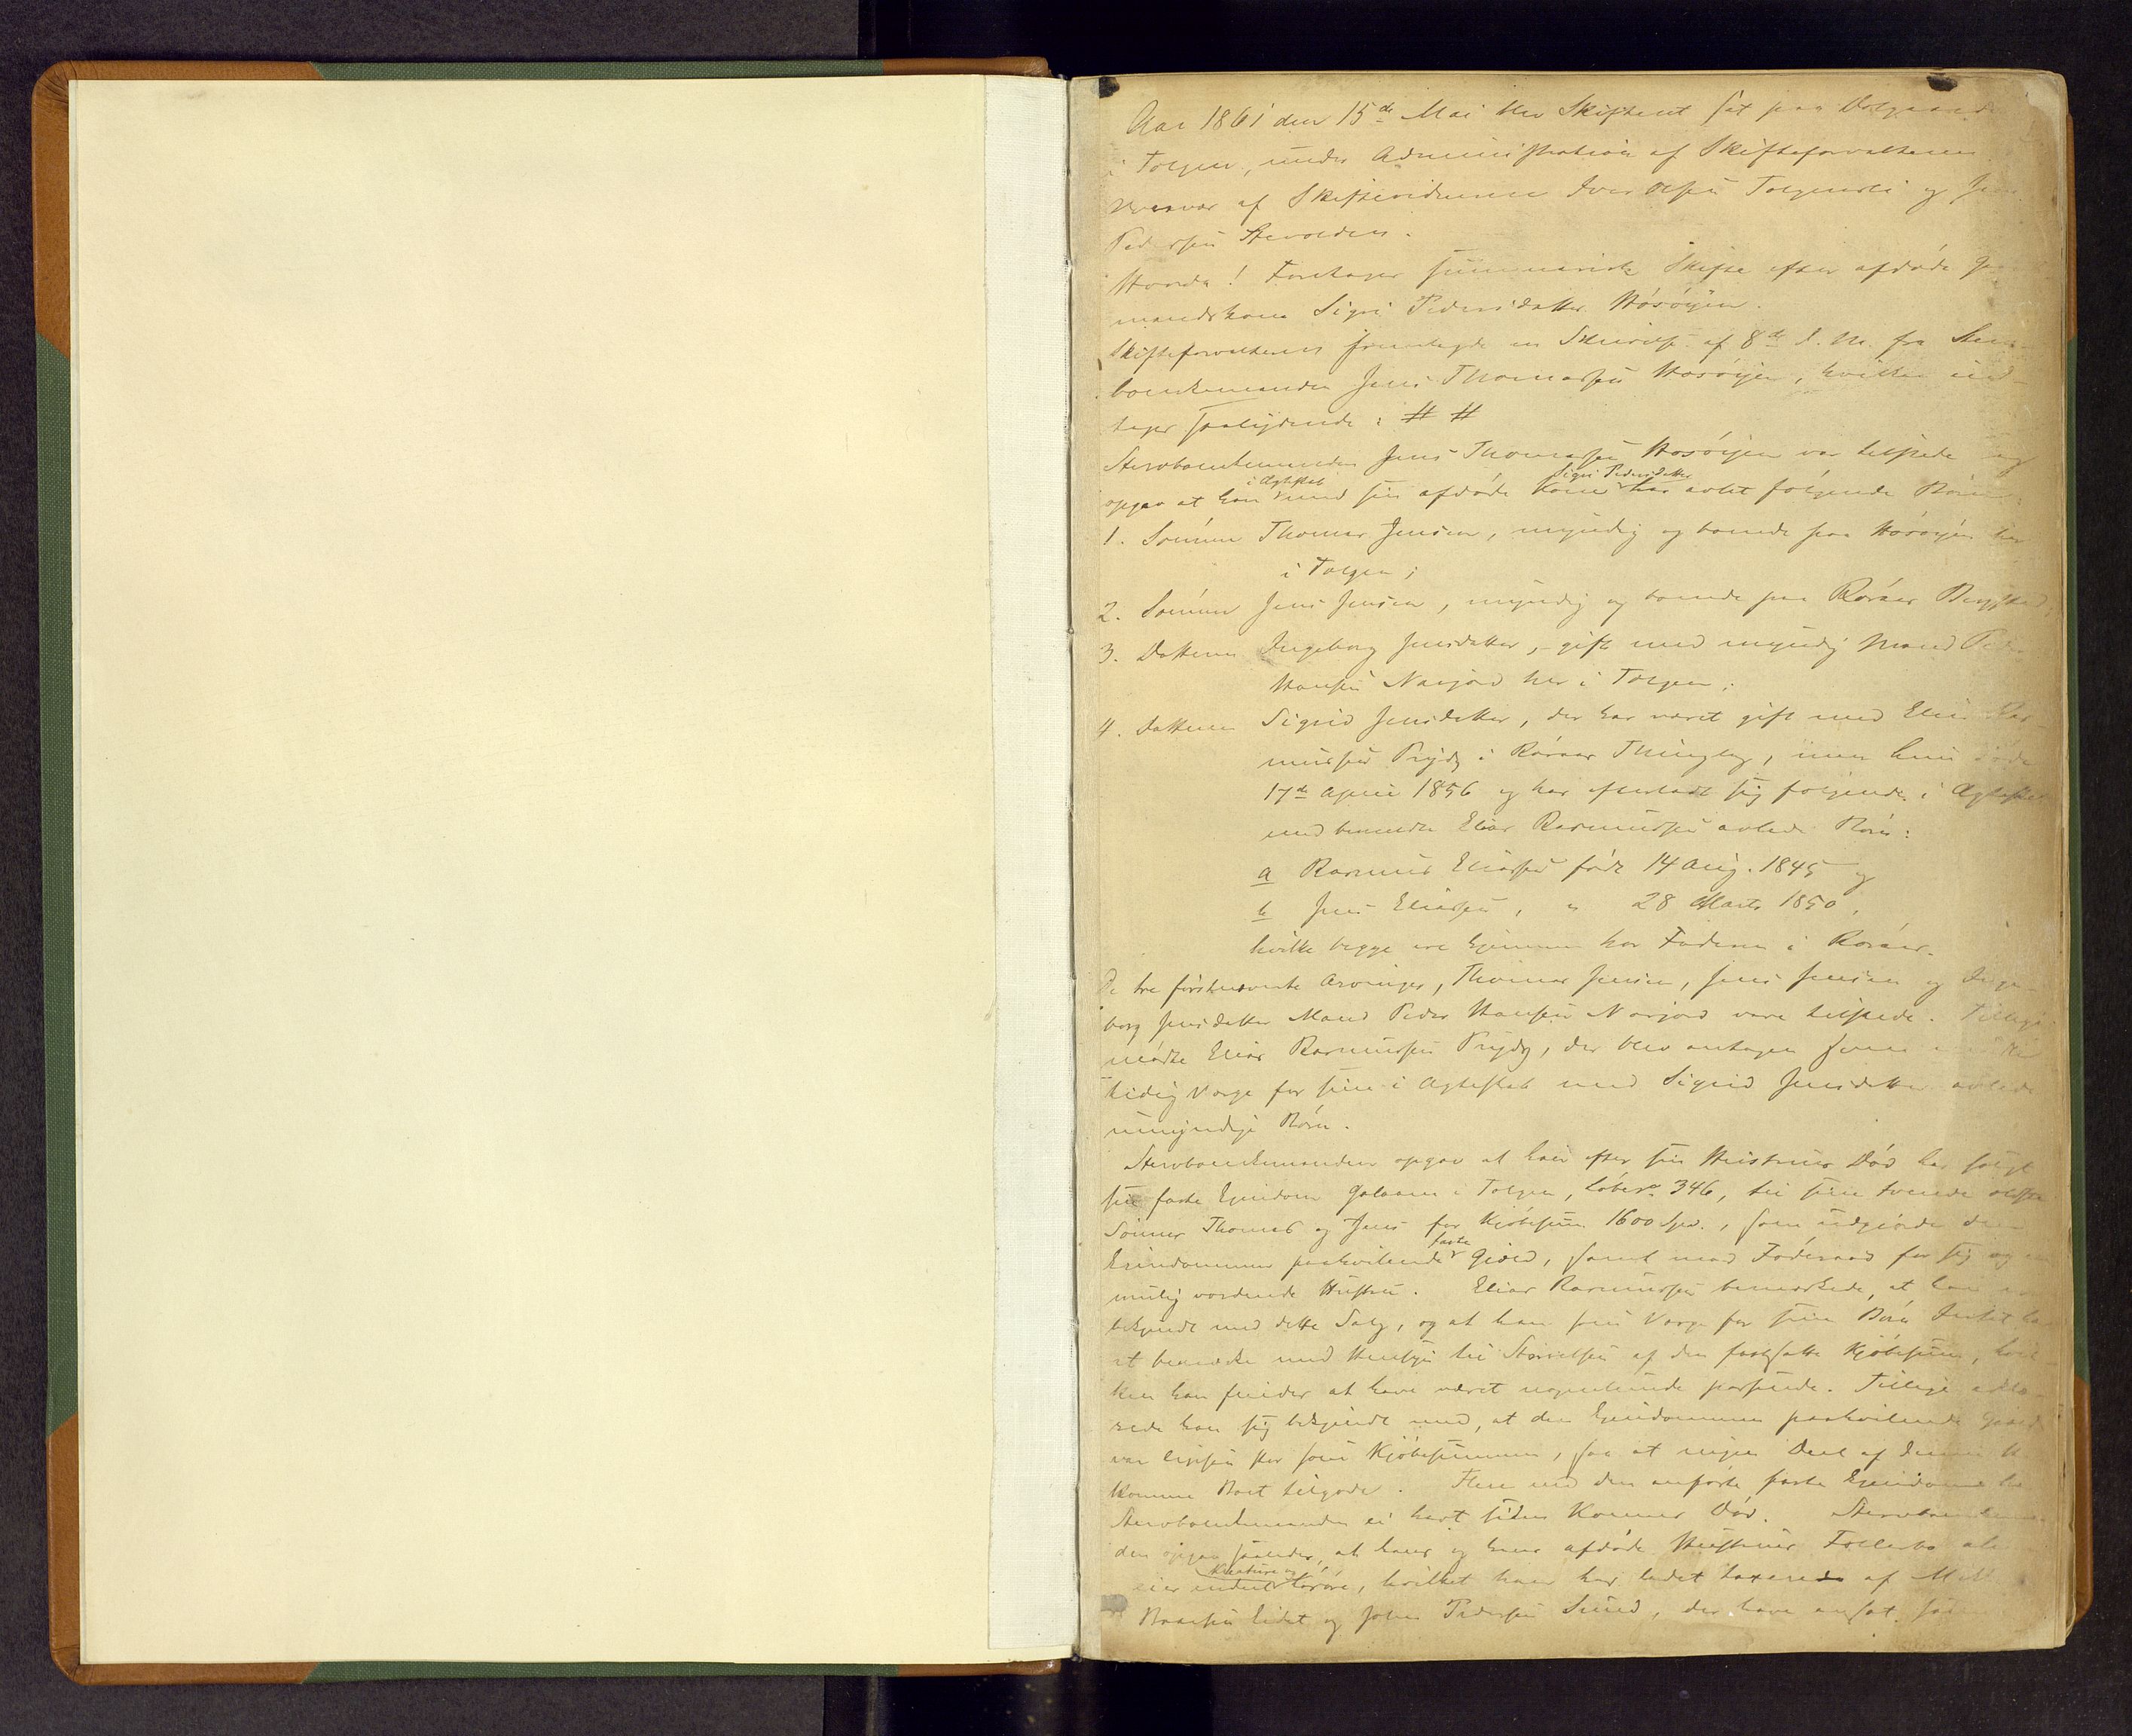 Aar 1861 den 15de Mai blev Skifteret sat paa
i Tolgen, under Administration af Skifteforvalteren
Overvær af Skiftevidnerne Iver Olsen og
Pedersen
Hvorda! Foretages summarisk Skifte efter afdøde
mandskone Sigri Pedersdatter Hösöien.
Skifteforvalteren fremlagde en Skrivelse af 8de d. M. fra Sterv-
boenkemanden Jens Thomassen Hosöien, hvilken ind-
tages saalydende: # #
Stervboenkemanden Jens Thomassen Hosöien var tilstede og
opgav at han i Ægteskab med sin afdøde Kone Sigri Pedersdatter har avlet følgende Børn:
1. Sönnen Thomas Jensen, myndig og boende paa Hösöien her
i Tolgen;
2. Sönnen Jens Jensen, myndig og boende paa Röraas Bergstad;
3. Datteren Ingeborg Jensdatter, gift med myndig Mand Peder
Hansen Narjord her i Tolgen;
4. Datteren Sigrid Jensdatter, der har været gift med Elias Ras-
mussen Prydz i Röraas Thinglag, men hun döde
17de April 1856 og har efterladt sig følgende i Ægteskab
med bemeldte Elias Rasmussen avlede Børn:
a Rasmus Eliassen född 14 Aug. 1845 og
b Jens Eliassen, " 28 Marts 1850,
hvilke begge ere hjemme hos Faderen i Röraas.
De tre förstnævnte Arvinger, Thomas Jensen, Jens Jensen og Inge-
borg Jensdatters Mand Peder Hansen Narjord vare tilstede. Tillige
mödte Elias Rasmussen Prydz, der blev antagen som
tidig Værge for sine i Ægteskab med Sigrid Jensdatter avlede
umyndige Börn.
Stervboenkemanden opgav at han efter sin Hustrues Död har solgt
sin faste Eiendom i Tolgen, Löbeno 346, til sine tvende ældste
Sönner Thomas og Jens for Kjöbesum 1600 Spd., som udgjorde den
Eiendommen paahvilende faste Gjæld, samt mod Föderaad for sig og en
mulig vordende Hustru. Elias Rasmussen bemærkede, at han er
bekjendt med dette Salg, og at han som Værge for sine Börn Intet har
at bemærke med Hensyn til Störrelsen af den fastsatte Kjöbesum, hvil-
ken han finder at have været nogenlunde passende. Tillige erklæ-
rede han sig bekjendt med, at den Eiendommen paahvilende Gjæld
var ligesaa stor som Kjöbesummen, saa at ingen Deel af denne
komme Boet tilgode. Flere end den anförte faste Eiendom har
Stervboenkemanden ei havt siden Konens Död. Stervboenkeman-
den opgav saaledes, at hans og hans afdöde Hustrues Fællesbo
eier Kreature og Lösöre, hvilket han har ladet taxere af
og Pedersen, der have ansat